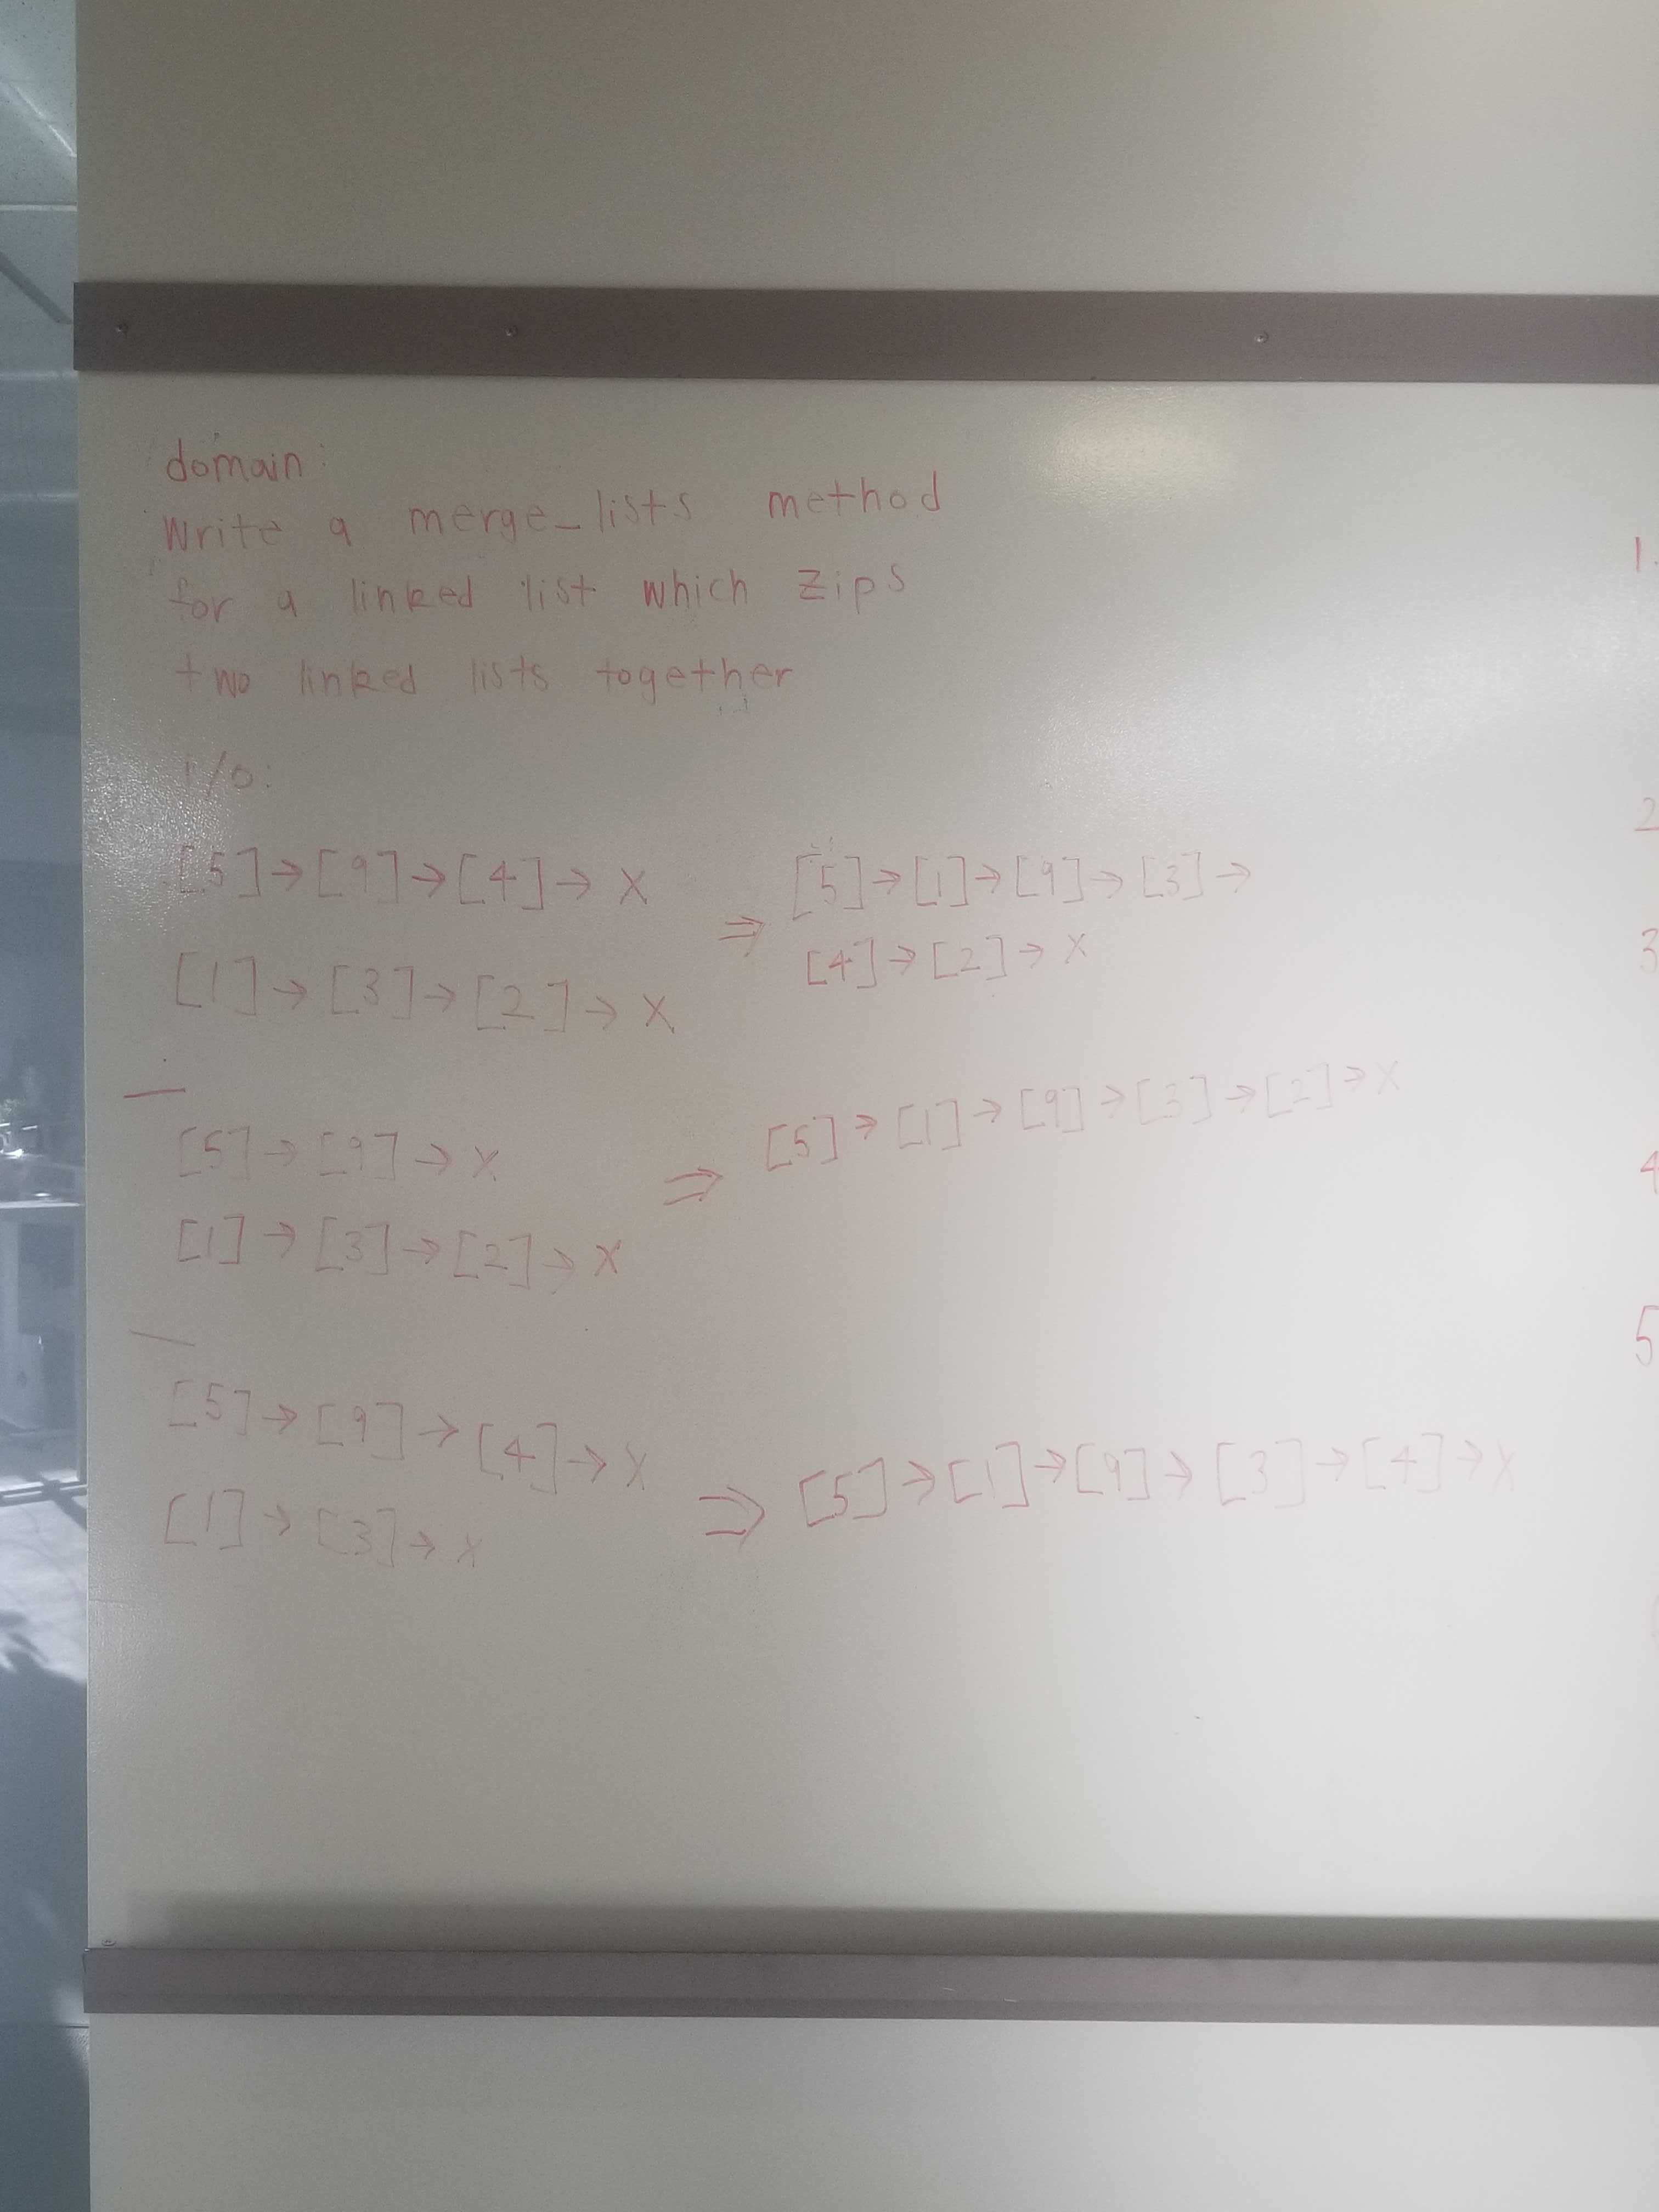 domain:
Write a merge_lists method
for a linked list which zips
two linked lists together
i/o:
[5]→[9]→[4]→X
[1]→[3]→[2]→X
⇒
[5]→[1]→[9]→[3]→
[4]→[2]→X
[5]→[9]→X
[1]→[3]→[2]→X
⇒ [5]→[1]→[9]→[3]→[2]→X
[5]→[9]→[4]→X
[1]→[3]→X
⇒ [5]→[1]→[9]→[3]→[4]→X
1.
2
3
4
5